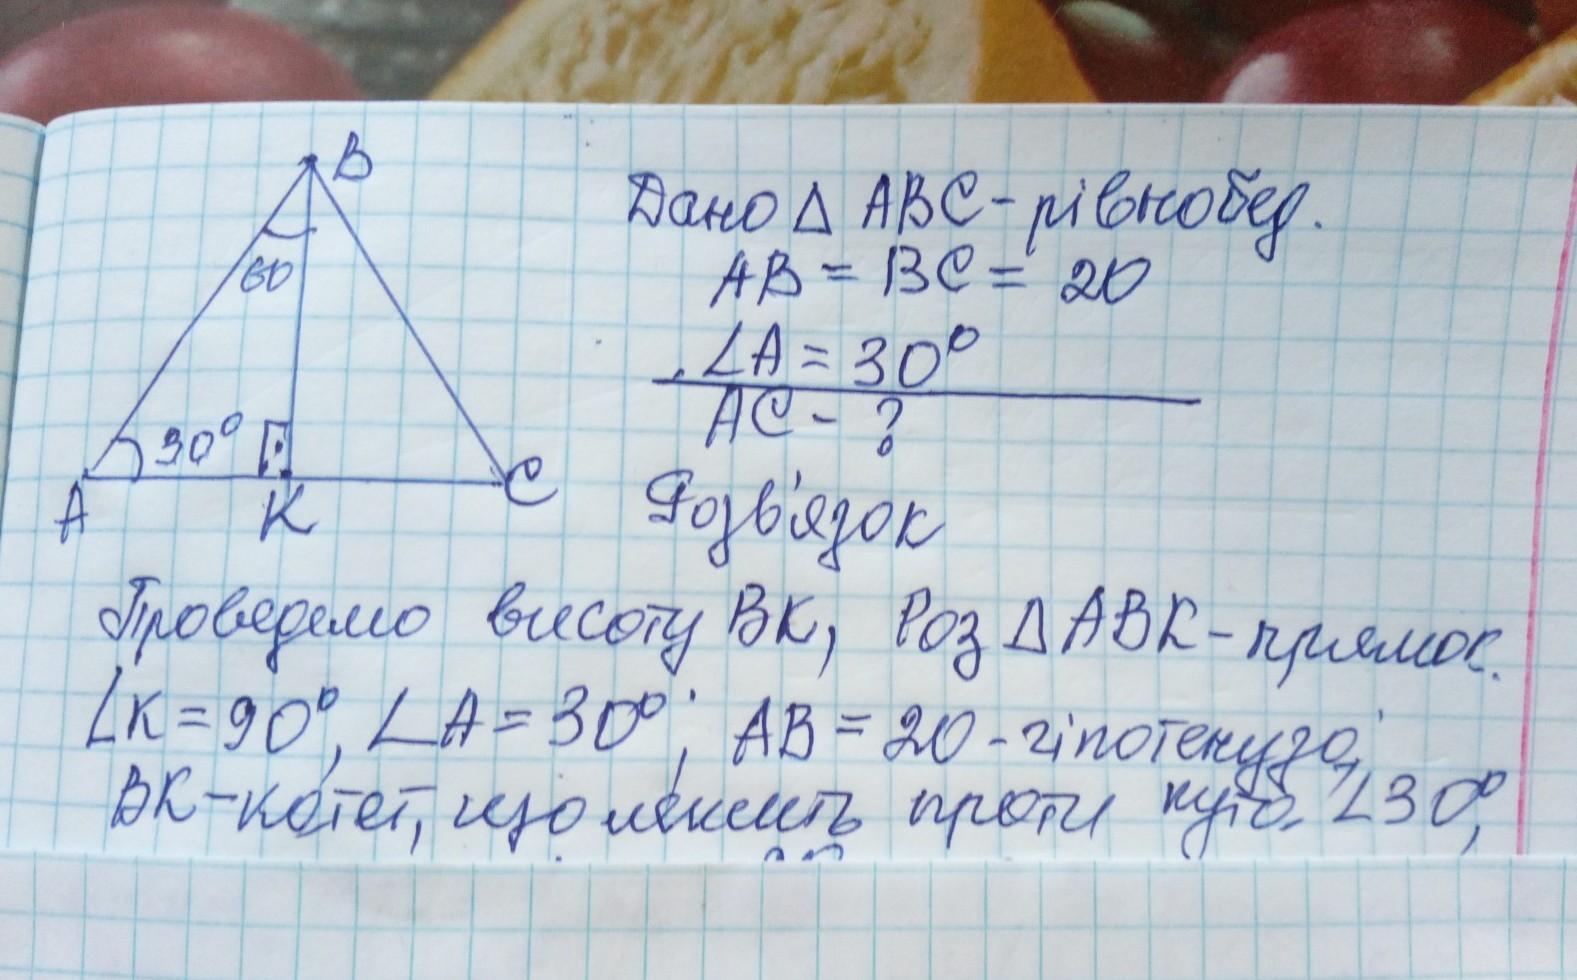 B
Дано Δ ABC - рівнобед.
AB = BC = 20
60
∠A = 30°
AC - ?
30°
A K C
Розв'язок
Проведемо висоту BK, Роз Δ ABK - прямок.
∠K = 90°, ∠A = 30°; AB = 20 - гіпотенуза,
BK - катет, що лежить проти кута ∠30°,